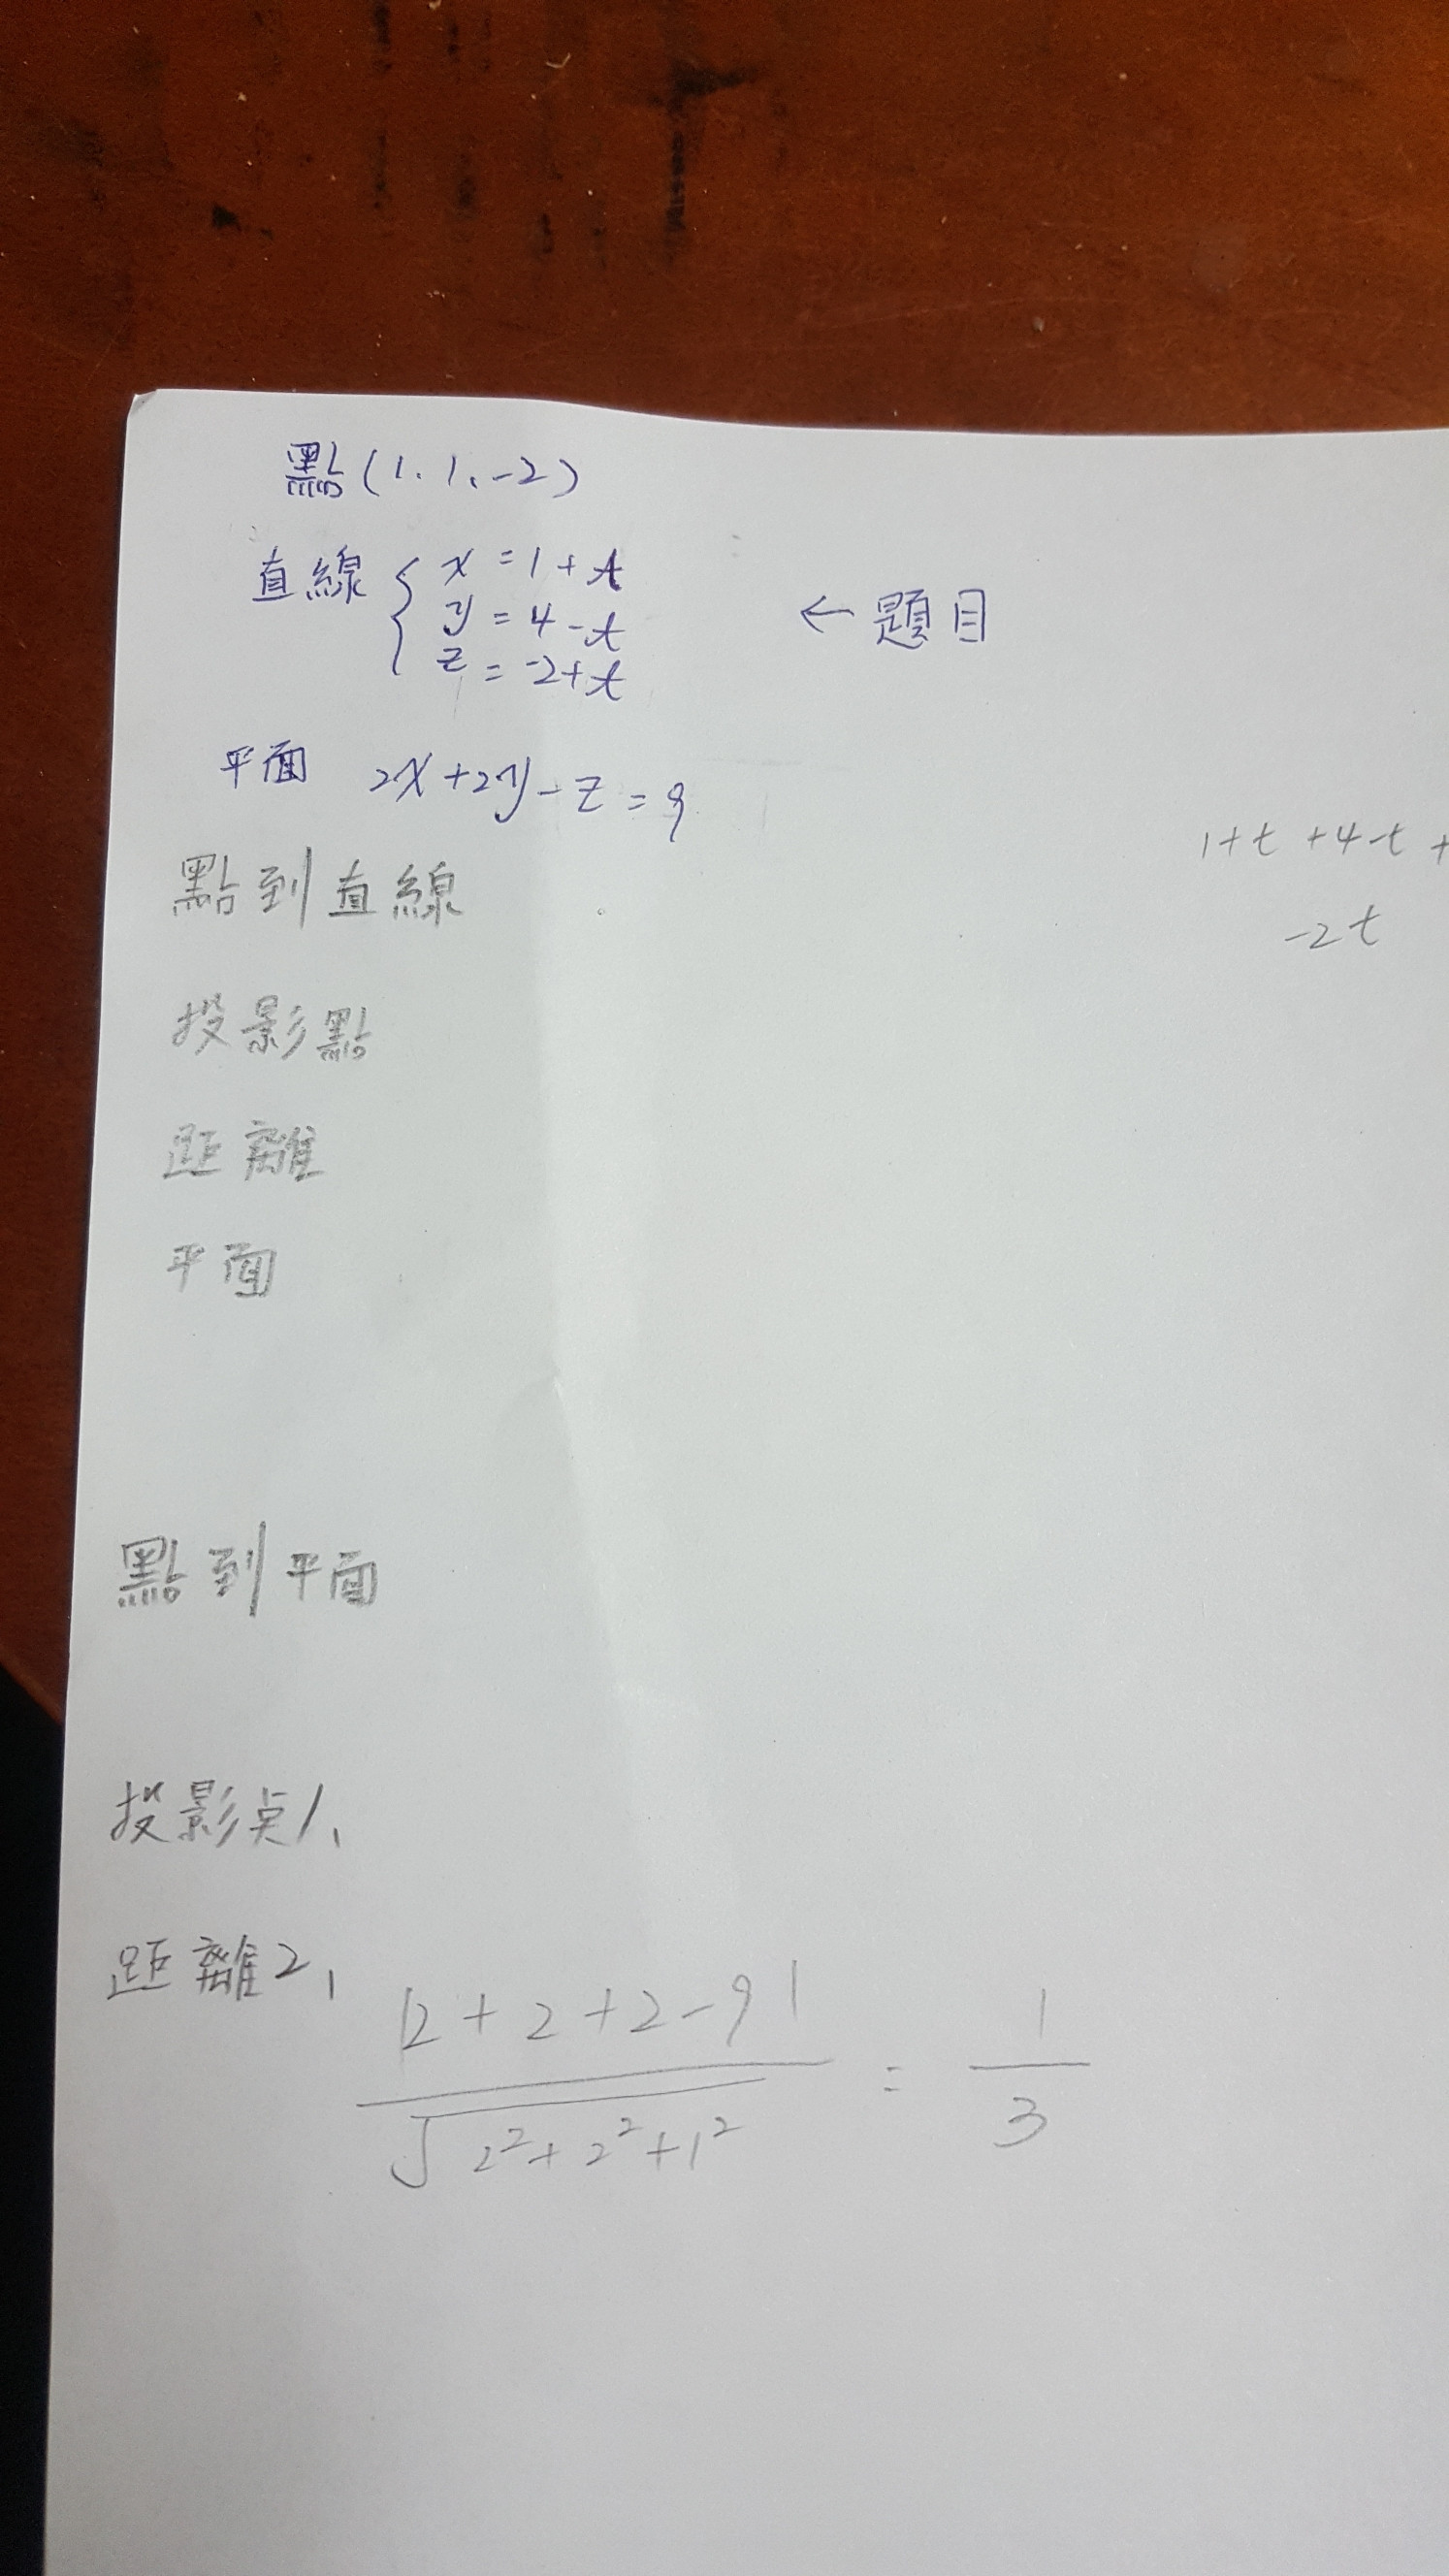 點(1、1、-2)
直線 { x = 1 + t
y = 4 - t
z = -2 + t
← 題目
平面 2x + 2y - z = 9
1+t +4-t +
-2t
點到直線
投影點
距離
平面
點到平面
投影点1、
距離2、
|2 + 2 + 2 - 9| / √2²+2²+1² = 1/3